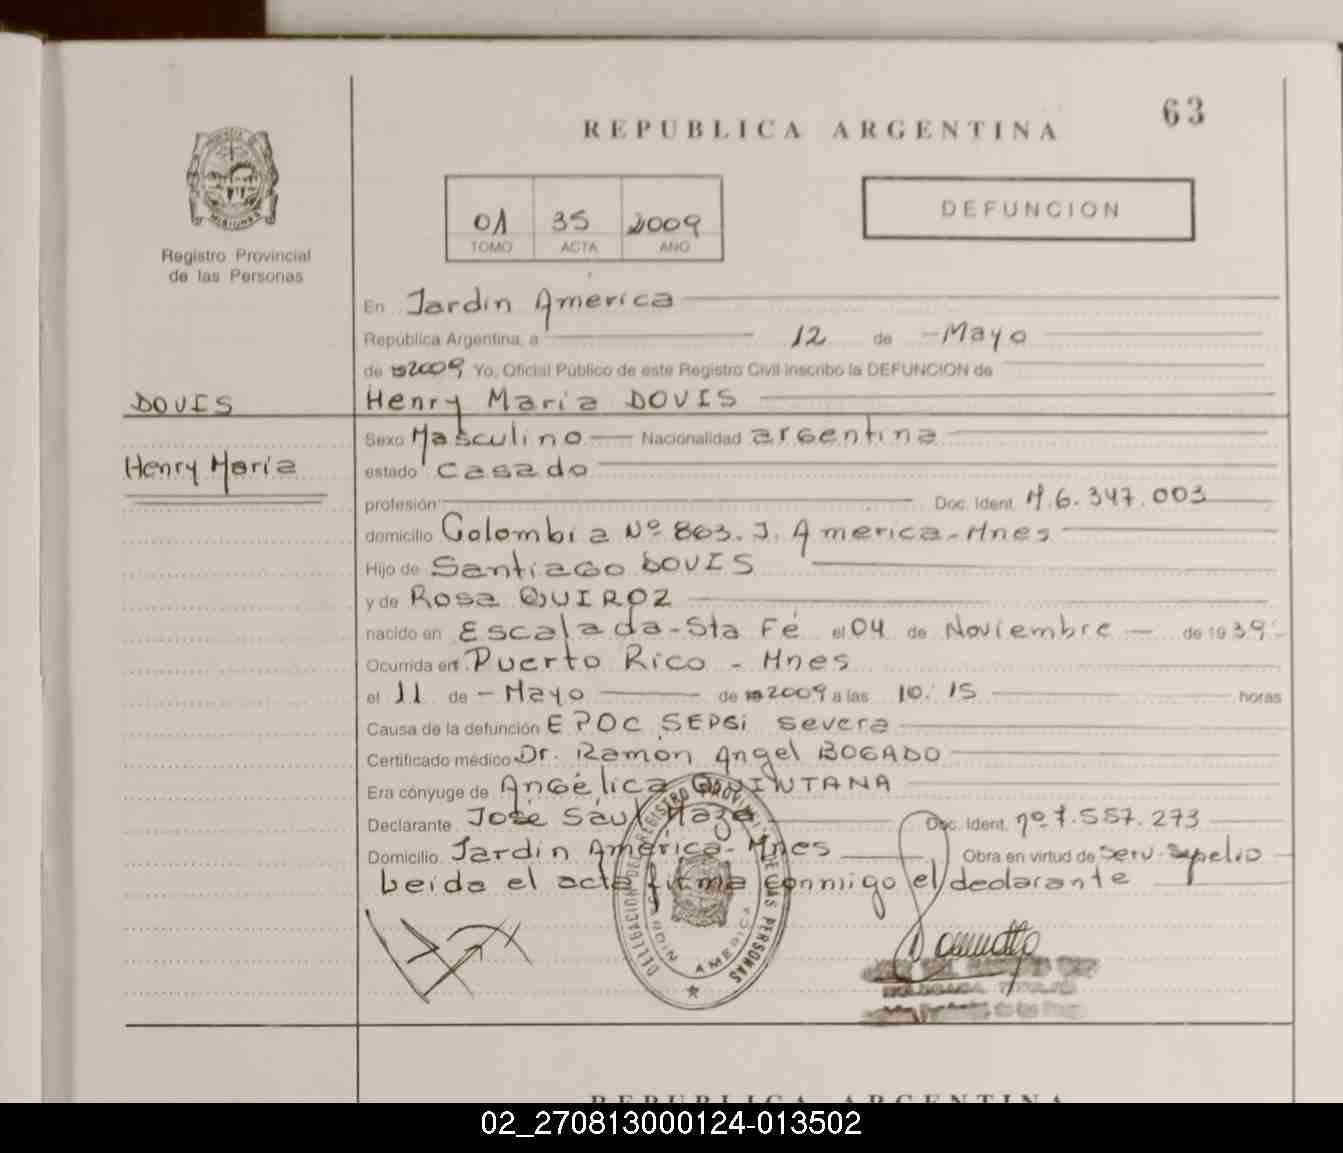 63
REPUBLICA ARGENTINA
DEFUNCION
01 35 2009
TOMO ACTA AÑO
MISIONES
Registro Provincial
de las Personas
En Jardin America
República Argentina, a 12 de Mayo
de 2009 Yo, Oficial Público de este Registro Civil inscribo la DEFUNCION de
DOVIS
Henry Maria DOVIS
Sexo Masculino Nacionalidad argentina
Henry Maria
estado Casado
profesión Doc. Ident. M.6.347.003
domicilio Colombia Nº 863. J. America-Mnes
Hijo de Santiago DOVIS
y de Rosa QUIROZ
nacido en Escalada-Sta Fé el 04 de Noviembre de 1939
Ocurrida en Puerto Rico - Mnes
el 11 de Mayo de 2009 a las 10:15 horas
Causa de la defunción EPOC SEPSi severa
Certificado médico Dr. Ramón Angel BOGADO
Era cónyuge de Angélica QUINTANA
Declarante José Saúl Doc. Ident. nº 7.557.273
Domicilio Jardin América-Mnes Obra en virtud de Serv. Sepelio
Leida el acta firma conmigo el declarante
DELEGACION DEL REGISTRO PROVINCIAL DE LAS PERSONAS
JARDIN AMERICA
REPUBLICA ARGENTINA
02_270813000124-013502